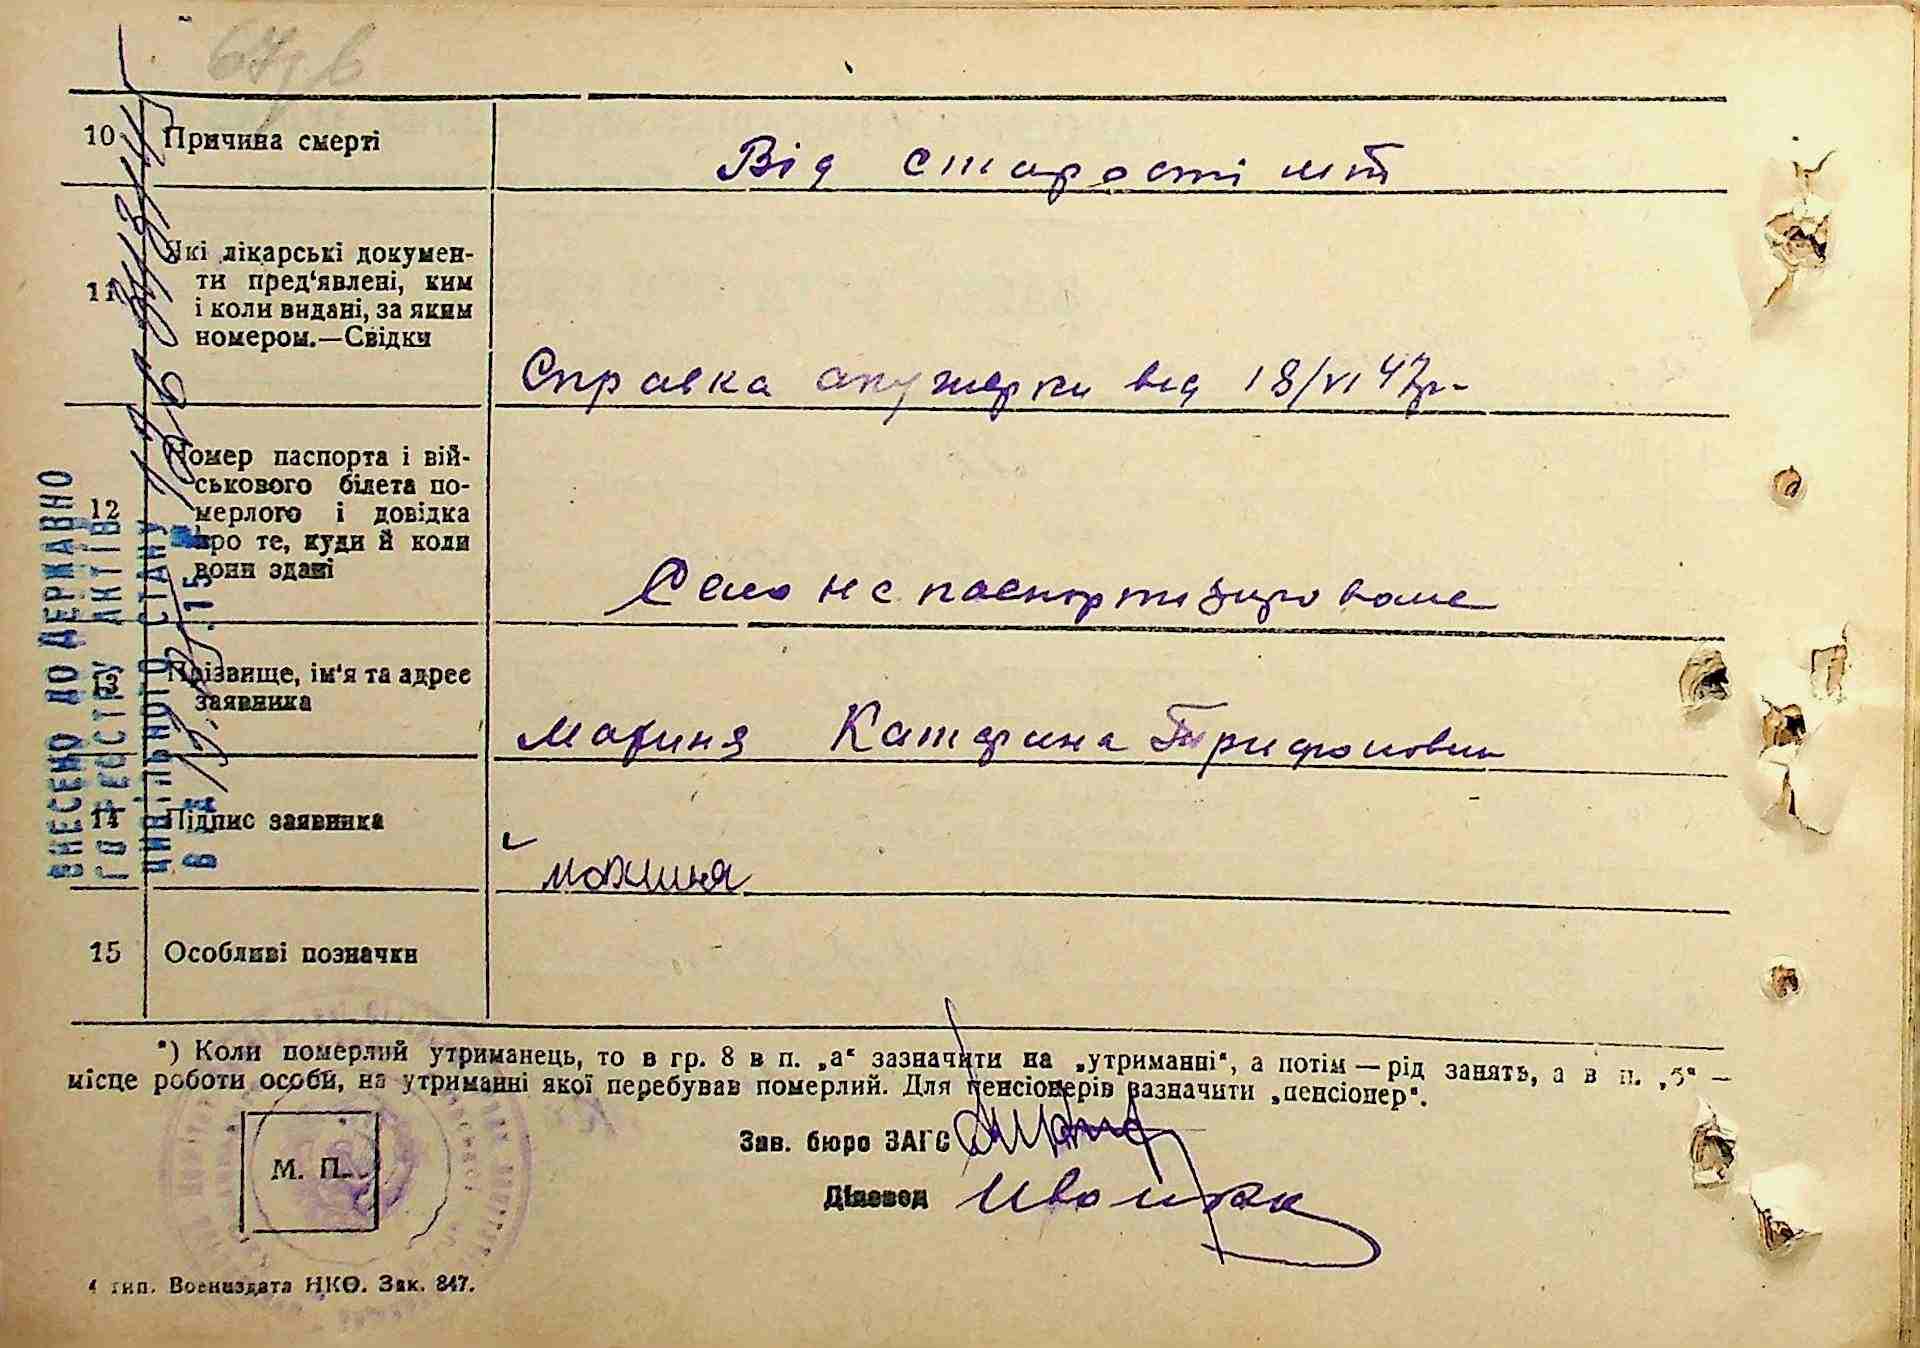 10 Причина смерті
Від старості літ
11 Які лікарські докумен-
ти пред‘явлені, ким
і коли видані, за яким
номером.—Свідки
Справка акушерки від 18/VI 47р.
12 Номер паспорта і вій-
ськового білета по-
мерлого і довідка
про те, куди й коли
вони здані
Село не паспортизироване
13 Прізвище, ім‘я та адрес
заявника
Катерина Трифоновна
14 Підпис заявника
15 Особливі позначки
*) Коли померлий утриманець, то в гр. 8 в п. „а“ зазначити на „утриманні“, а потім — рід занять, а в п. „б“ —
місце роботи особи, на утриманні якої перебував померлий. Для пенсіонерів зазначити „пенсіонер“.
Зав. бюро ЗАГС
М. П.
Діловод
4 тип. Воениздата НКО. Зак. 847.
ВНЕСЕНО ДО ДЕРЖАВНО
ГО РЕЄСТРУ АКТІВ
ЦИВІЛЬНОГО СТАНУ